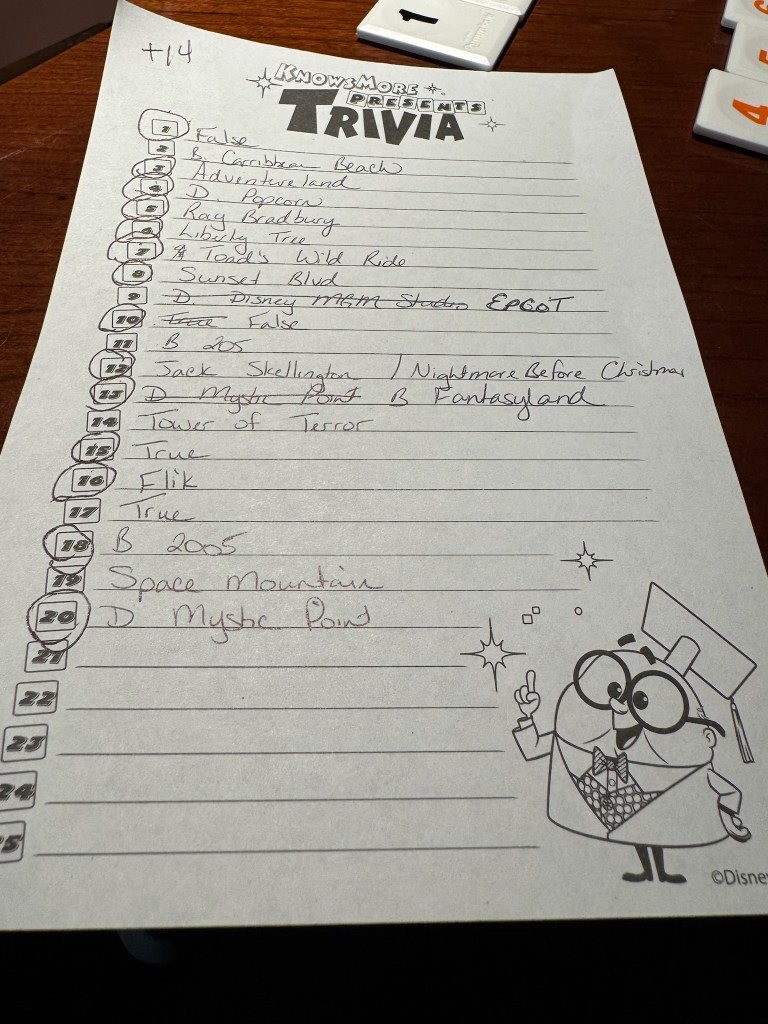 1
6
5
4
+14
KNOWSMORE
PRESENTS
TRIVIA
1 False
2 B. Carribbean Beach
3 Adventureland
4 D. Popcorn
5 Ray Bradbury
6 Liberty Tree
7 Toad's Wild Ride
8 Sunset Blvd
9 D Disney MGM Studio EPCOT
10 True False
11 B 205
12 Jack Skellington / Nightmare Before Christmas
13 D Mystic Point B Fantasyland
14 Tower of Terror
15 True
16 Flik
17 True
18 B 2005
19 Space Mountain
20 D Mystic Point
21
22
23
24
25
©Disney